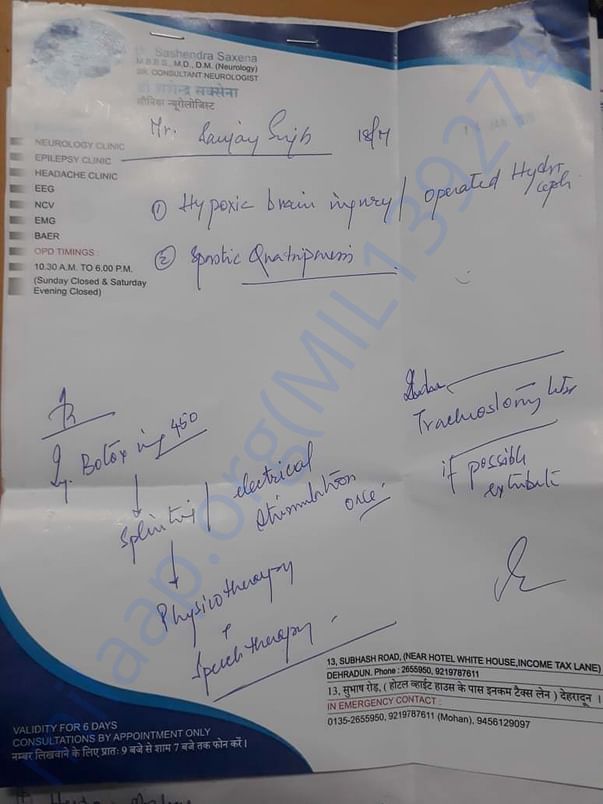 Dr. Sashendra Saxena
M.B.B.S., M.D., D.M. (Neurology)
SR. CONSULTANT NEUROLOGIST
सक्सेना
न्यूरोलॉजिस्ट
Mr. Sanjay Singh 18/M
NEUROLOGY CLINIC
EPILEPSY CLINIC
HEADACHE CLINIC
EEG
NCV
EMG
BAER
OPD TIMINGS :
10.30 A.M. TO 6.00 P.M.
(Sunday Closed & Saturday
Evening Closed)
① Hypoxic brain injury / operated Hydroceph
② Spastic Quatriparesis
Inj. Botox 450
Splinting / electrical
stimulation
once
Physiotherapy
Speech therapy
Tracheostomy
if possible
extubate
13, SUBHASH ROAD, (NEAR HOTEL WHITE HOUSE,INCOME TAX LANE)
DEHRADUN. Phone : 2655950, 9219787611
13, सुभाष रोड़, ( होटल व्हाईट हाउस के पास इनकम टैक्स लेन ) देहरादून ।
IN EMERGENCY CONTACT :
0135-2655950, 9219787611 (Mohan), 9456129097
VALIDITY FOR 6 DAYS
CONSULTATIONS BY APPOINTMENT ONLY
नम्बर लिखवाने के लिए प्रातः 9 बजे से शाम 7 बजे तक फोन करें।
aap.org(MIL139274